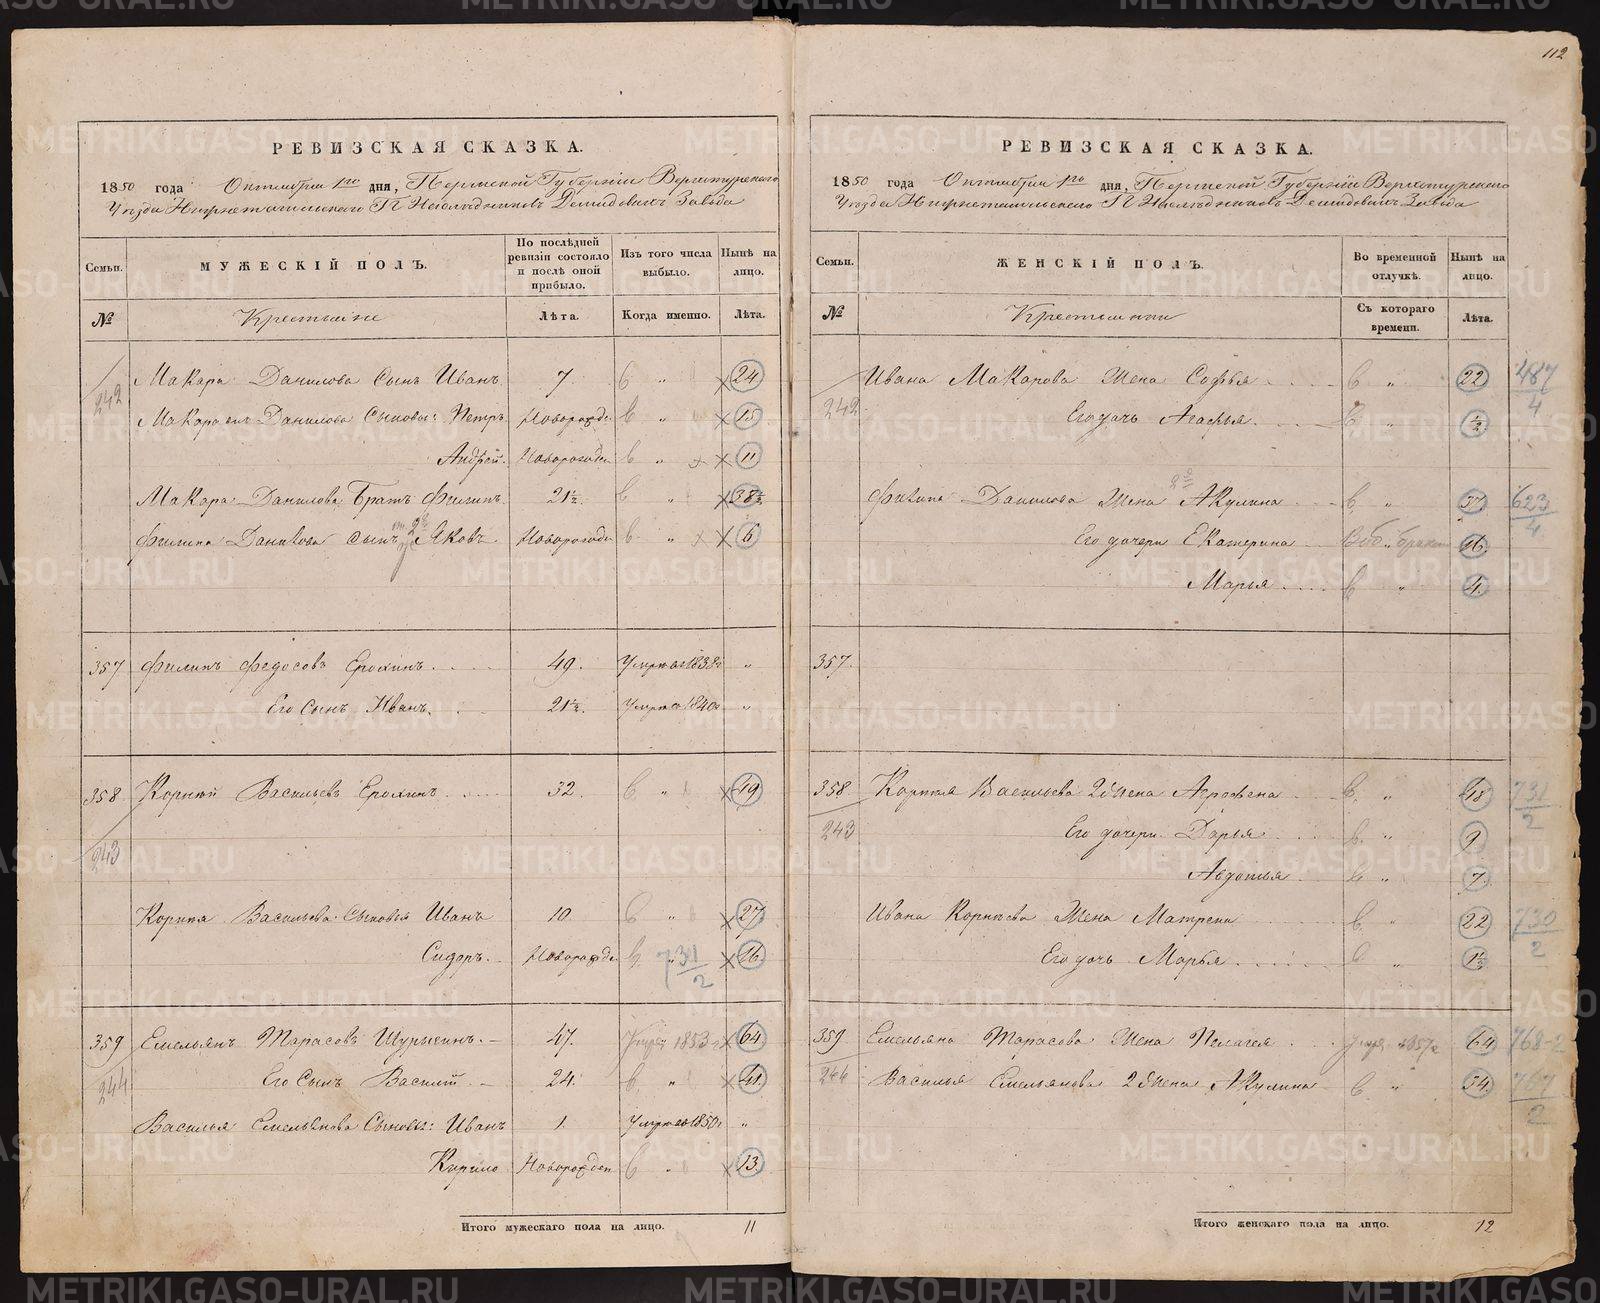 112
РЕВИЗСКАЯ СКАЗКА.
1850 года Октября 1го дня, Пермской Губернии Верхотурского
Уезда Нижнетагильского Г. Наследников Демидовых Завода
Семьи. МУЖЕСКІЙ ПОЛЪ. По послѣдней ревизіи состояло и послѣ оной прибыло. Изъ того числа выбыло. Нынѣ на лицо.
№ Крестьяне Лѣта. Когда именно. Лѣта.
242 Макара Данилова Сынъ Иванъ 7. 24
Макара Данилова Сыновья: Петръ Новорожде 15
Андрей. Новорожде 11
Макара Данилова Братъ Филипъ 21½ 38½
Филипа Данилова сынъ Яковъ Новорожде 6
357 Филипъ Федосовъ Ерохинъ 49. Умре въ 1838 „
Его Сынъ Иванъ. 21½. Умре въ 1840 „
358 Корнилій Васильевъ Ерохинъ 32. „ 49
243
Корнила Васильева Сыновья Иванъ 10 „ 27
Сидоръ. Новорожде „ 731/2 16
359 Емельянъ Тарасовъ Шурыгинъ. 47. 1853 64
244 Его Сынъ Василій 24. „ 41
Василья Емельянова Сыновья: Иванъ 1. Умре въ 1850 „
Кирило Новорожден „ 13
Итого мужескаго пола на лицо. 11
РЕВИЗСКАЯ СКАЗКА.
1850 года Октября 1го дня, Пермской Губерніи Верхотурского
Уезда Нижнетагильского Г. Наследниковъ Демидовыхъ Завода
Семьи. ЖЕНСКІЙ ПОЛЪ. Во временной отлучкѣ. Нынѣ на лицо.
№ Крестьянки Съ котораго времени. Лѣта.
Ивана Макарова Жена Софья „ 22 487/4
242 Его дочь Агафья „ ½
Филипа Данилова Жена Акулина „ 37 623/4
Его дочери Екатерина 16
Марья „ 4
357.
358 Корнила Васильева 2я Жена Агрофена „ 48 731/2
243 Его дочери Дарья „ 9
Авдотья „ 7
Ивана Корнилова Жена Матрена „ 22 730/2
Его дочь Марья „ 1½
359 Емельяна Тарасова Жена Пелагея 1857 64 768-2
244 Василья Емельянова 2я Жена Акулина „ 34 767/2
Итого женскаго пола на лицо. 12
METRIKI.GASO-URAL.RU